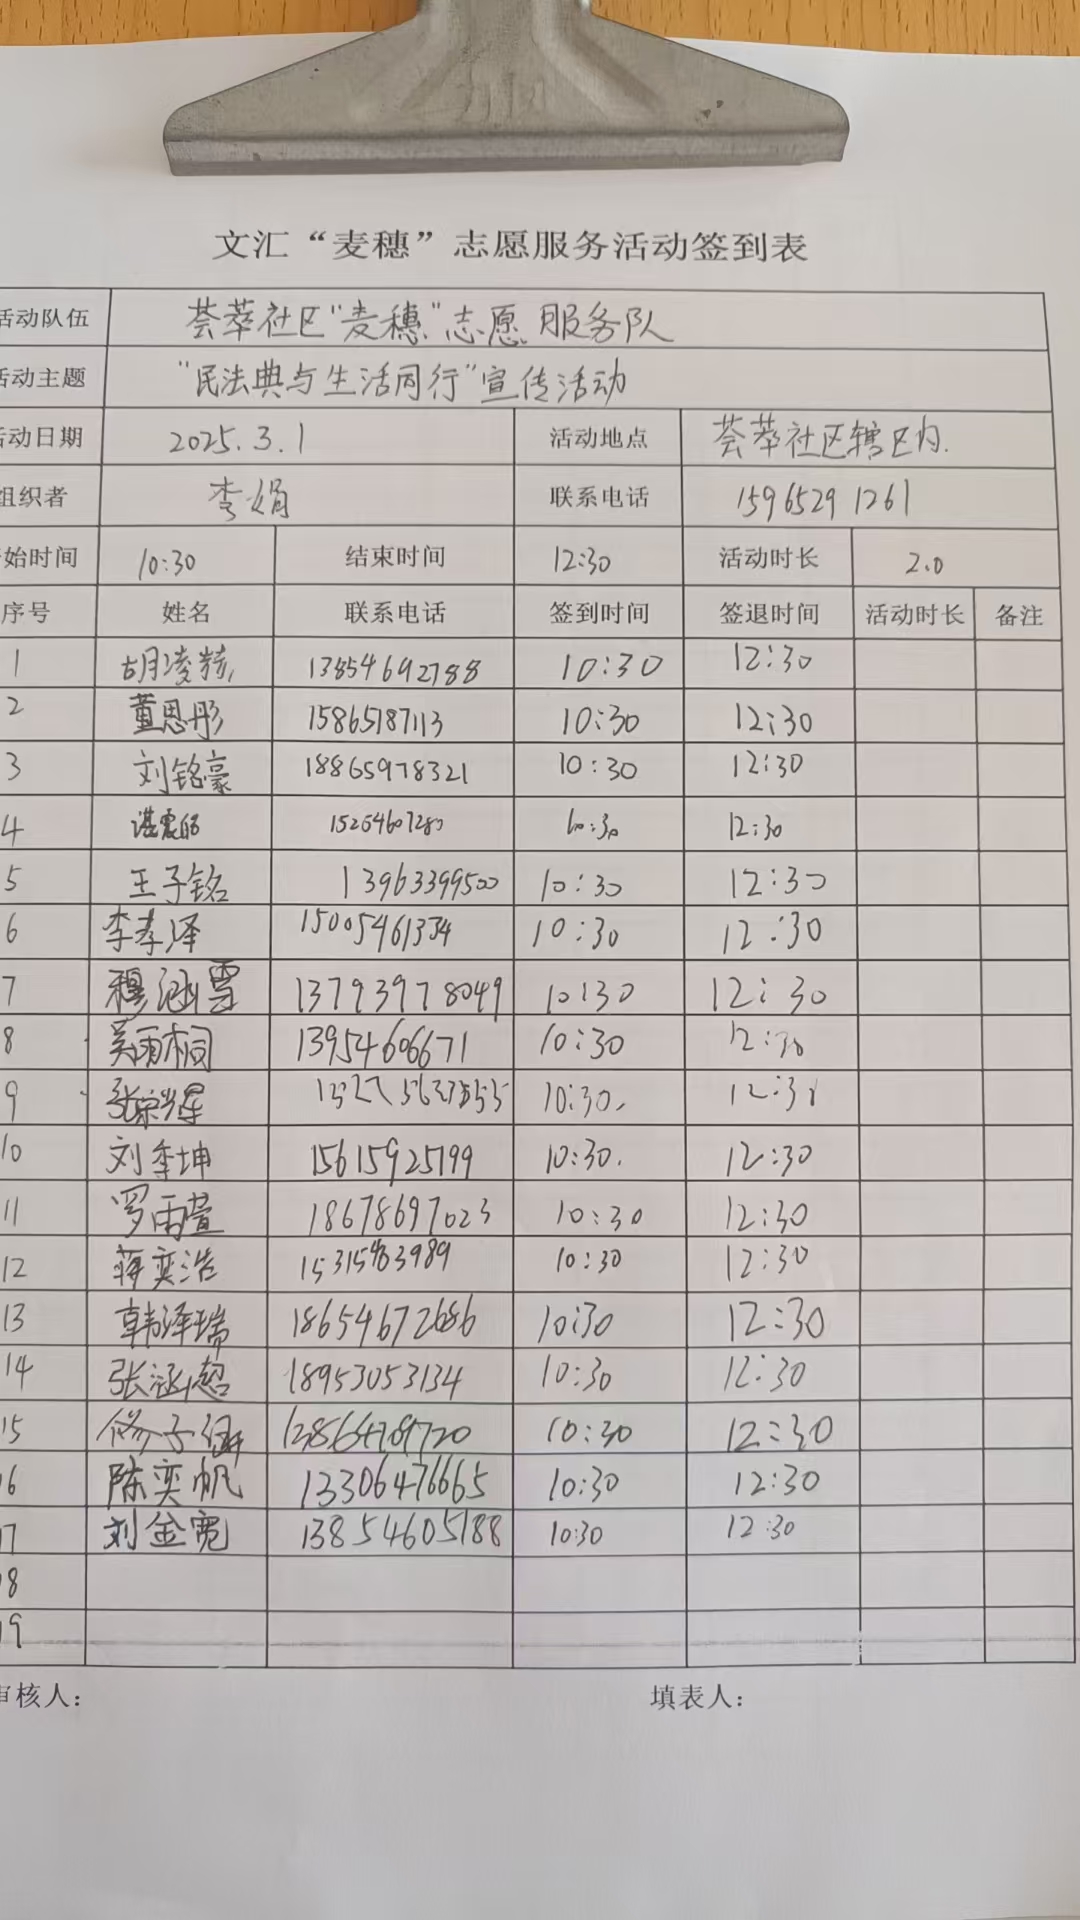 文汇“麦穗”志愿服务活动签到表
活动队伍 荟萃社区“麦穗”志愿服务队
活动主题 “民法典与生活同行”宣传活动
活动日期 2025.3.1 活动地点 荟萃社区辖区内.
组织者 李娟 联系电话 15965291261
始时间 10:30 结束时间 12:30 活动时长 2.0
序号 姓名 联系电话 签到时间 签退时间 活动时长 备注
1 胡凌 13854692788 10:30 12:30
2 董思彤 15865187113 10:30 12:30
3 刘铭豪 18865978321 10:30 12:30
4 10:30 12:30
5 王子铭 13963399500 10:30 12:30
6 李孝泽 15005461334 10:30 12:30
7 穆涵雪 13793978049 10:30 12:30
8 吴雨桐 13954606671 10:30 12:30
9 10:30. 12:30
10 刘季坤 15615925199 10:30. 12:30
11 罗雨萱 18678697023 10:30 12:30
12 蒋奕浩 10:30 12:30
13 韩泽瑞 18654672686 10:30 12:30
14 张涵超 18953053134 10:30 12:30
15 修子 10:30 12:30
16 陈奕帆 13306476665 10:30 12:30
17 刘金宽 13854605188 10:30 12:30
18
19
审核人： 填表人：